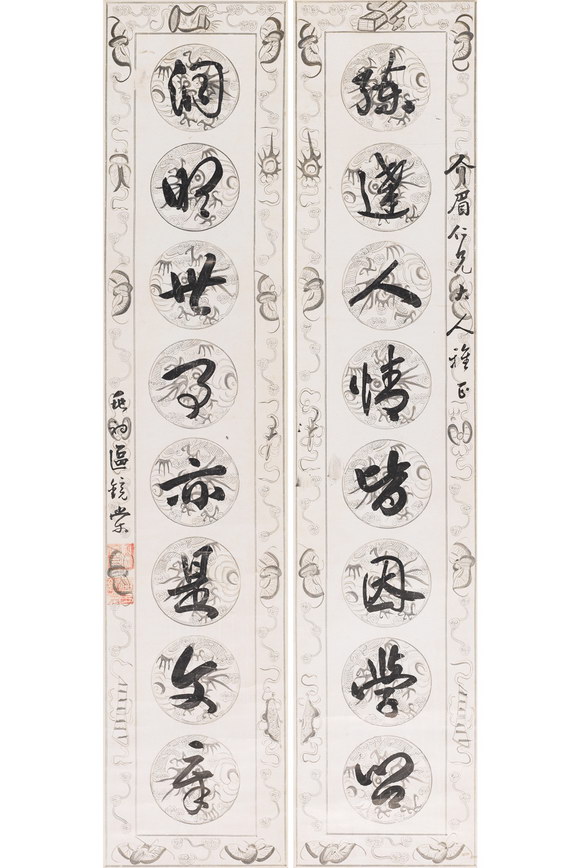 介眉仁兄大人雅正
練達人情皆因學問
洞明世事亦是文章
區鏡棠